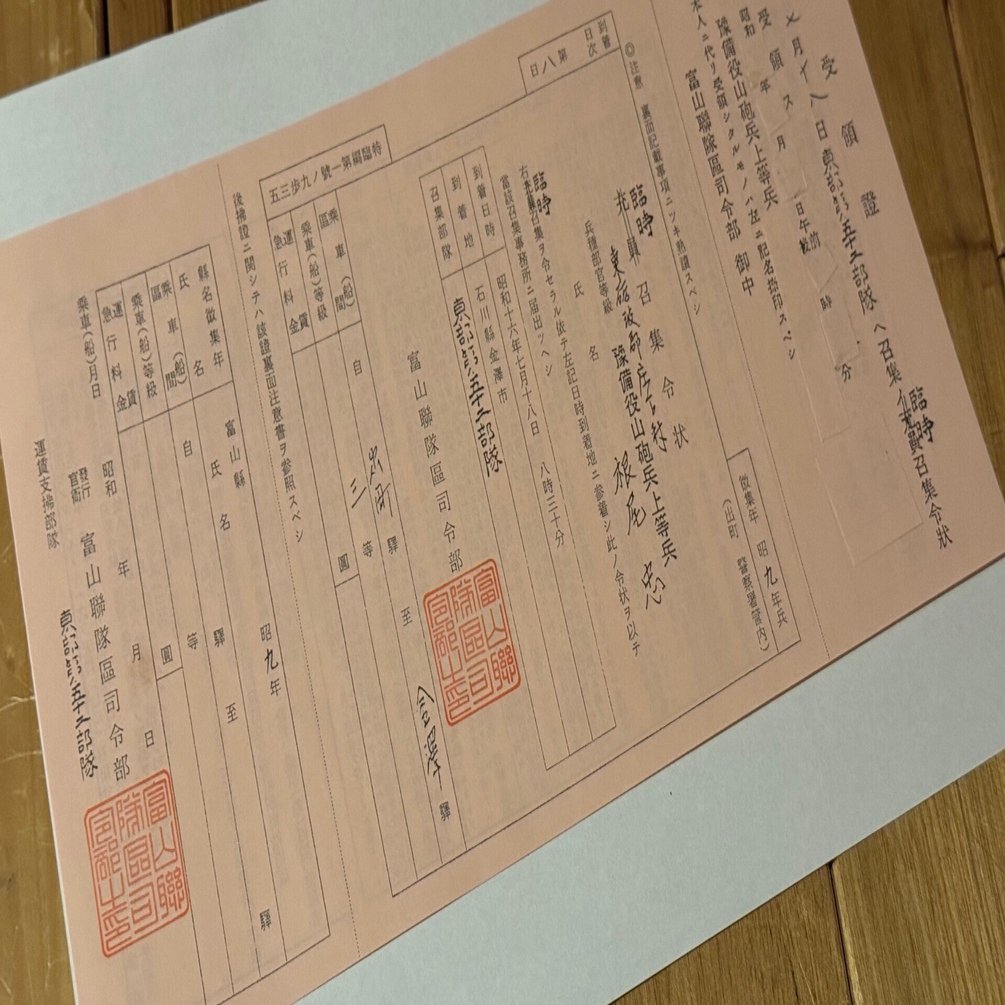 受領證
臨時
召集令狀
月
八日東部第五十二部隊ヘ召集
受領
昭和 年 月 日午 時 分
豫備役山砲兵上等兵
本人ニ代リ受領シタルモノハ左ニ記名捺印スベシ
富山聯隊區司令部 御中
到着日次 第八日
◎注意 裏面記載事項ニツキ熟讀スベシ
徵集年 昭九年兵
(出町 警察署管內)
臨時
召集令狀
豫備役山砲兵上等兵
兵種部官等級
氏名 根尾
臨時
右 召集ヲ令セラル依テ左記日時到着地ニ參着シ此ノ令狀ヲ以テ
當該召集事務所ニ屆出ヅヘシ
到着日時 昭和十六年七月十八日 八時三十分
到着地 石川縣金澤市
召集部隊 東部第五十二部隊
富山聯隊區司令部
富山聯隊區司令部之印
特臨編第一號ノ九步三五
乘車(船)區間 自 出町 驛 至 金澤 驛
乘車(船)等級 三等
運賃 急行料金 圓
後拂證ニ關シテハ該證裏面注意書ヲ參照スベシ
縣名徵集年 富山縣 昭九年
氏名 氏名
乘車(船)區間 自 驛 至 驛
乘車(船)等級 等
運賃 急行料金 圓
乘車(船)月日 昭和 年 月 日
發行官衙 富山聯隊區司令部
富山聯隊區司令部之印
運賃支拂部隊 東部第五十二部隊